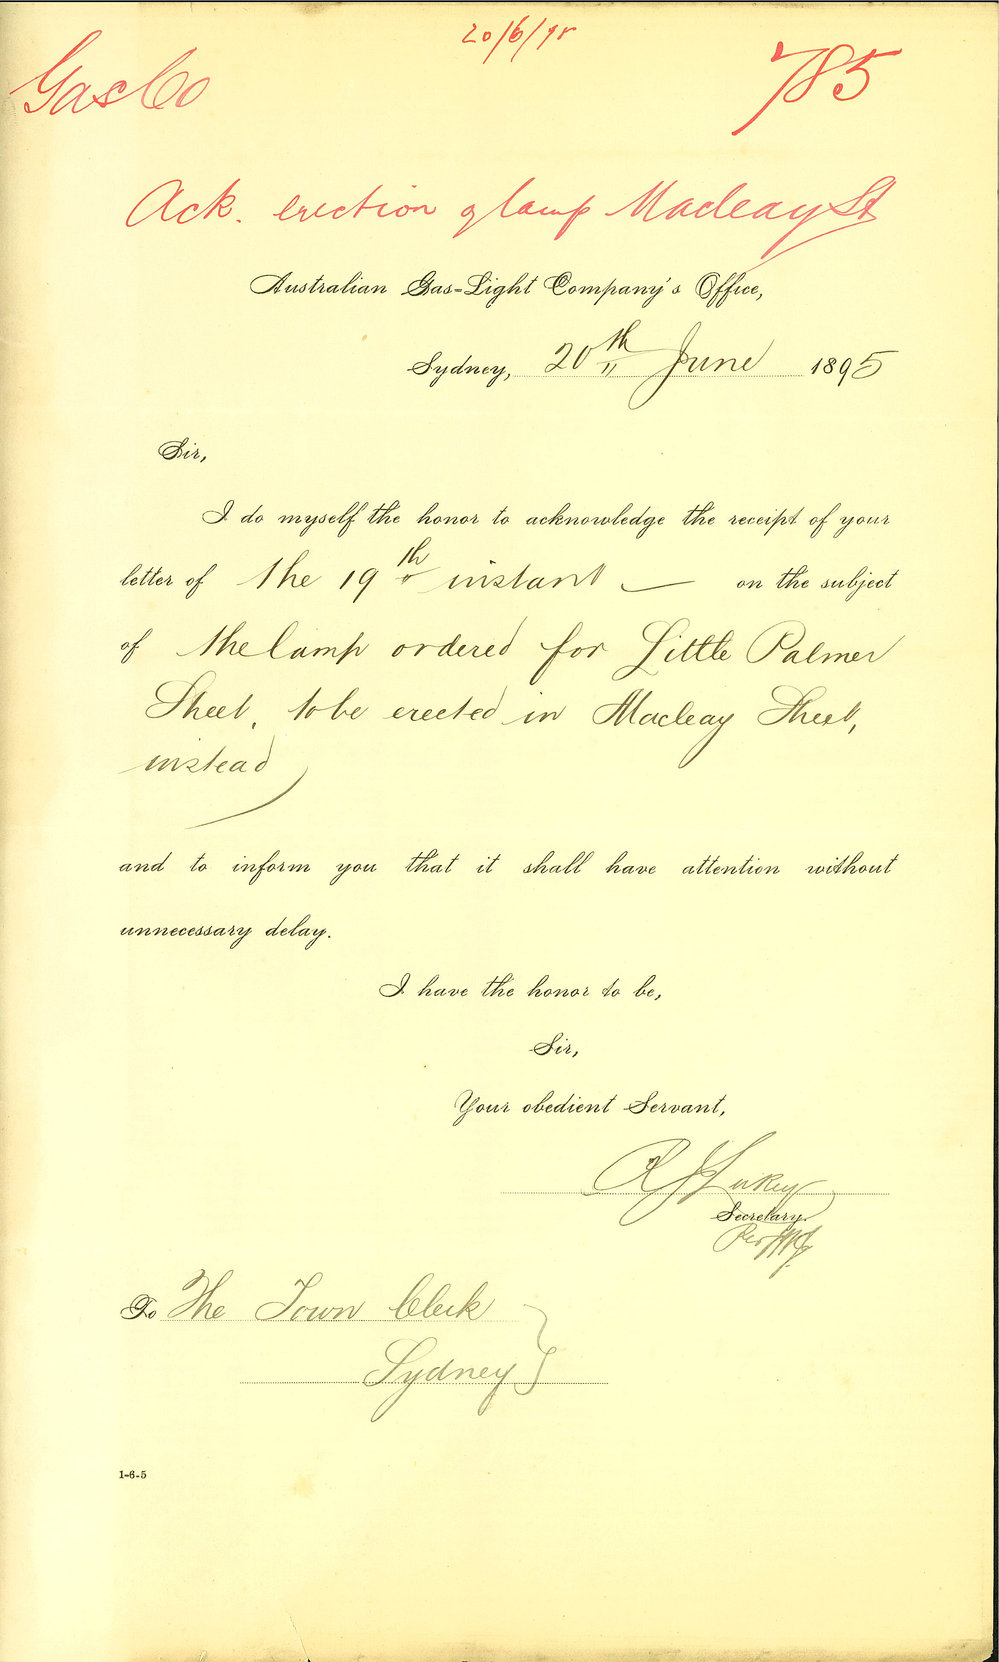 20/6/95
Gas Co
785
Ack. erection of lamp Macleay St
Australian Gas-Light Company's Office,
Sydney, 20th June 1895
Sir,
I do myself the honor to acknowledge the receipt of your
letter of the 19th instant — on the subject
of the lamp ordered for Little Palmer
Street, to be erected in Macleay Street,
instead
and to inform you that it shall have attention without
unnecessary delay.
I have the honor to be,
Sir,
Your obedient Servant,
Secretary
Per
To The Town Clerk
Sydney
1-6-5